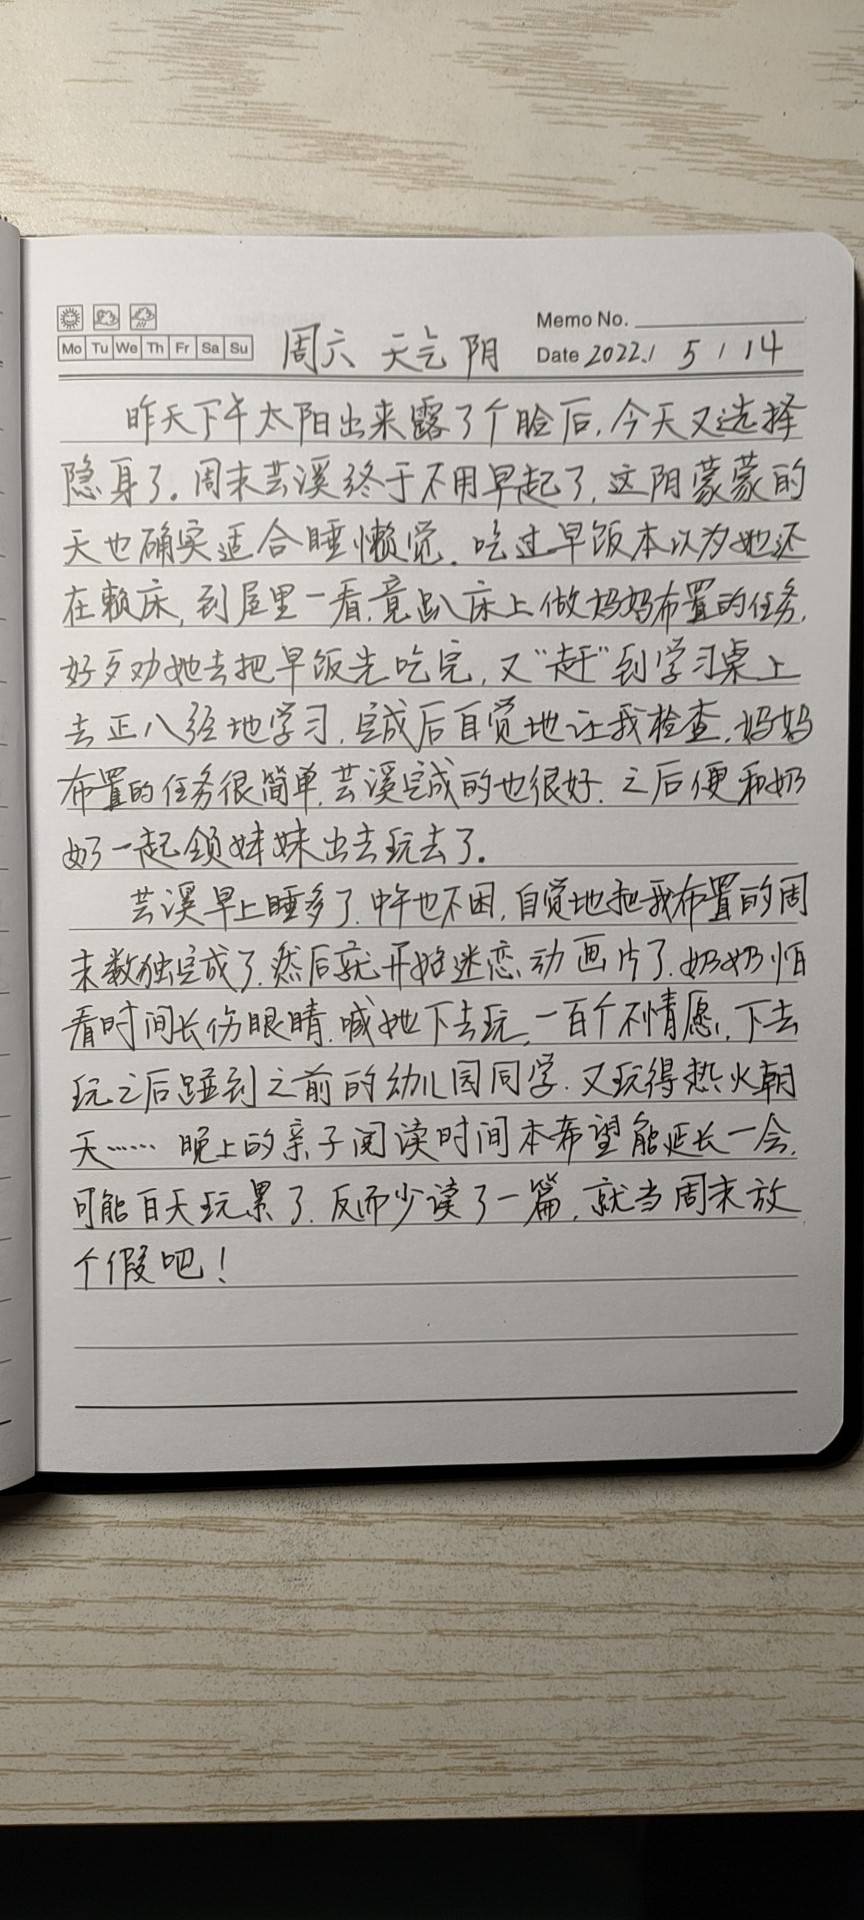 Memo No.
Mo Tu We Th Fr Sa Su
周六 天气 阴
Date 2022.1 5 1 14
昨天下午太阳出来露了个脸后,今天又选择
隐身了。周末芸溪终于不用早起了,这阴蒙蒙的
天也确实适合睡懒觉.吃过早饭本以为她还
在赖床,到屋里一看,竟趴床上做妈妈布置的任务,
好歹劝她去把早饭先吃完,又“赶”到学习桌上
去正八经地学习,完成后自觉地让我检查,妈妈
布置的任务很简单,芸溪完成的也很好.之后便和奶
奶一起领妹妹出去玩去了。
芸溪早上睡多了,中午也不困,自觉地把我布置的周
末数独完成了,然后就开始迷恋动画片了.奶奶怕
看时间长伤眼睛,喊她下去玩,一百个不情愿,下去
玩之后碰到之前的幼儿园同学,又玩得热火朝
天……晚上的亲子阅读时间本希望能延长一会,
可能白天玩累了,反而少读了一篇,就当周末放
个假吧!